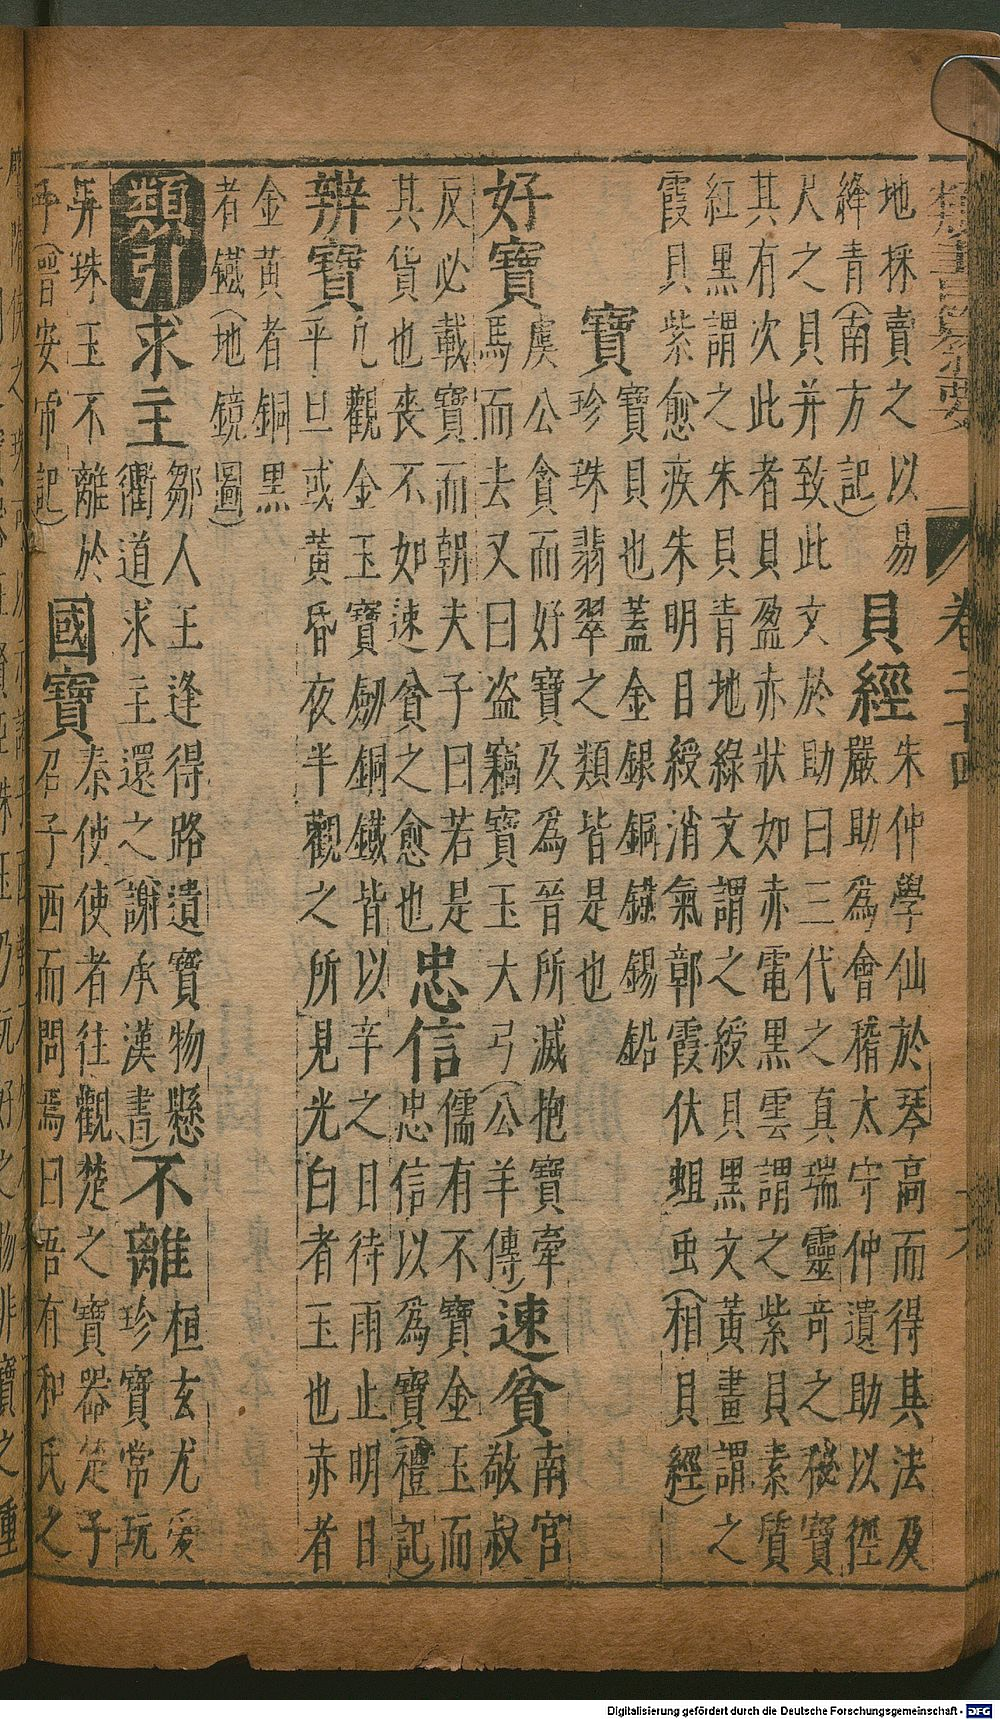 卷二十四
地採賣之以易
絳青(南方記)
貝經
朱仲學仙於琴高而得其法及
嚴助為會稽太守仲遺助以徑
尺之貝并致此文於助曰三代之真瑞靈奇之秘寶
其有次此者貝盈赤狀如赤電黑雲謂之紫貝素質
紅黑謂之朱貝青地綠文謂之綬貝黑文黃畫謂之
霞貝紫愈疾朱明目綬消氣郭霞伏蛆虫(相貝經)
寶
寶貝也蓋金銀銅鐵錫鉛
珍珠翡翠之類皆是也
好寶
虞公貪而好寶及為晉所滅抱寶牽
馬而去又曰盜竊寶玉大弓(公羊傳)
速貧
南宮
敬叔
反必載寶而朝夫子曰若是
其貨也喪不如速貧之愈也
忠信
儒有不寶金玉而
忠信以為寶(禮記)
辨寶
凡觀金玉寶劒銅鐵皆以辛之日待雨止明日
平旦或黃昏夜半觀之所見光白者玉也赤者
金黃者銅黑
者鐵(地鏡圖)
類引
求主
鄒人王逢得路遺寶物懸
衢道求主還之(謝承漢書)
不離
桓玄尤愛
珍寶常玩
弄珠玉不離於
手(晉安帝記)
國寶
秦使使者往觀楚之寶器楚子
召子西而問焉曰吾有和氏之
Digitalisierung gefördert durch die Deutsche Forschungsgemeinschaft - DFG